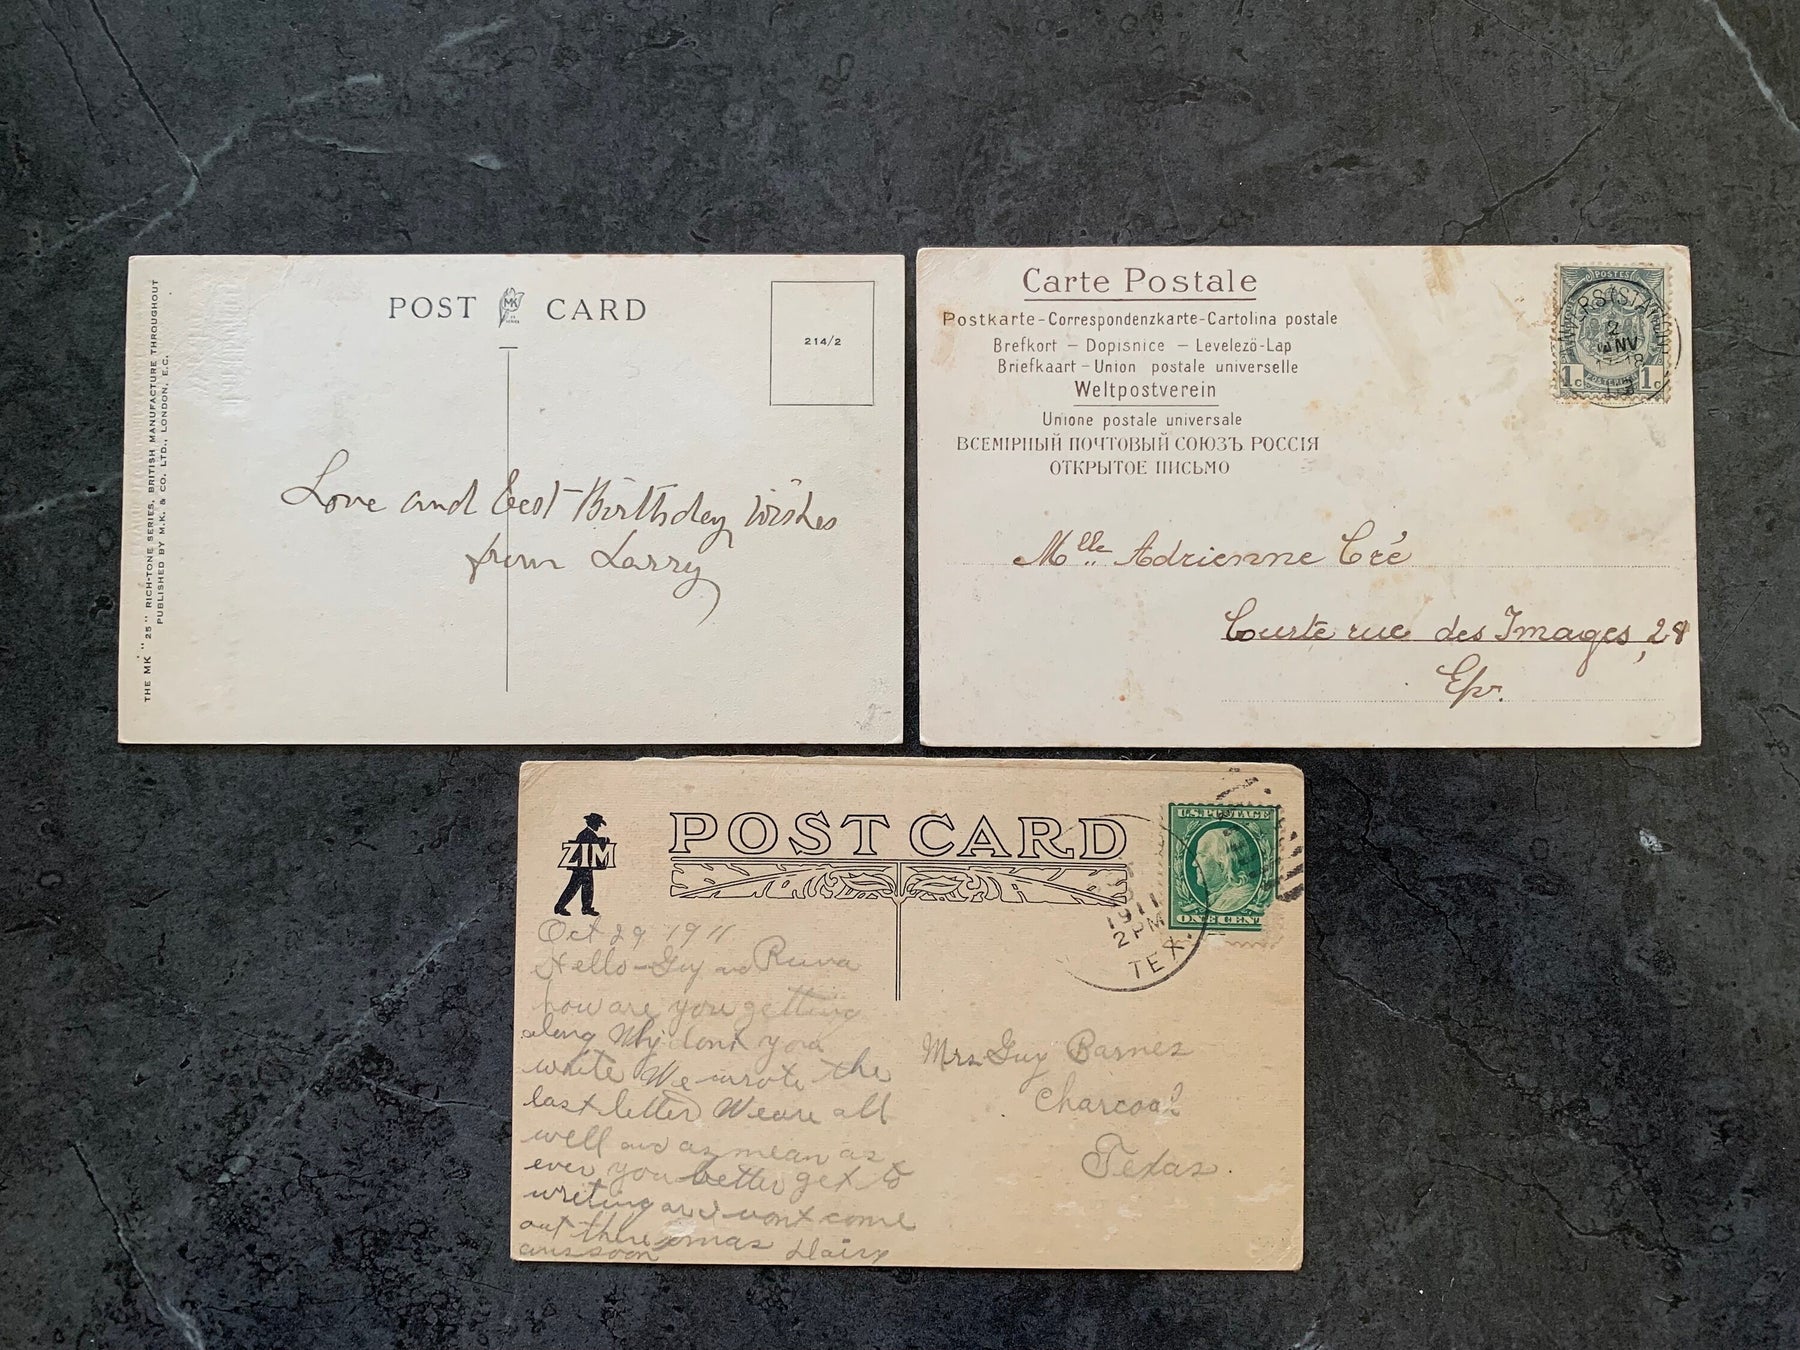 THE MK "25" RICH-TONE SERIES. BRITISH MANUFACTURE THROUGHOUT
PUBLISHED BY M.K. & CO. LTD., LONDON, E.C.
POST MK CARD
214/2
Love and best Birthday Wishes
from Larry
Carte Postale
Postkarte-Correspondenzkarte-Cartolina postale
Brefkort – Dopisnice – Levelező-Lap
Briefkaart – Union postale universelle
Weltpostverein
Unione postale universale
ВСЕМІРНЫЙ ПОЧТОВЫЙ СОЮЗЪ РОССІЯ
ОТКРЫТОЕ ПИСЬМО
POSTES
2
JANV
1c 1c
Mlle Adrienne Cré
Courte rue des Images, 28
ZIM
POST CARD
U.S. POSTAGE
ONE CENT
1911
2 PM
TEX.
Oct 29 1911
Hello-Guy and
how are you getting
along Why dont you
write We wrote the
last letter We are all
well and as mean as
ever you better get to
writing or I wont come
out there xmas
ans soon
Mrs Guy Barnes
Charcoal
Texas.